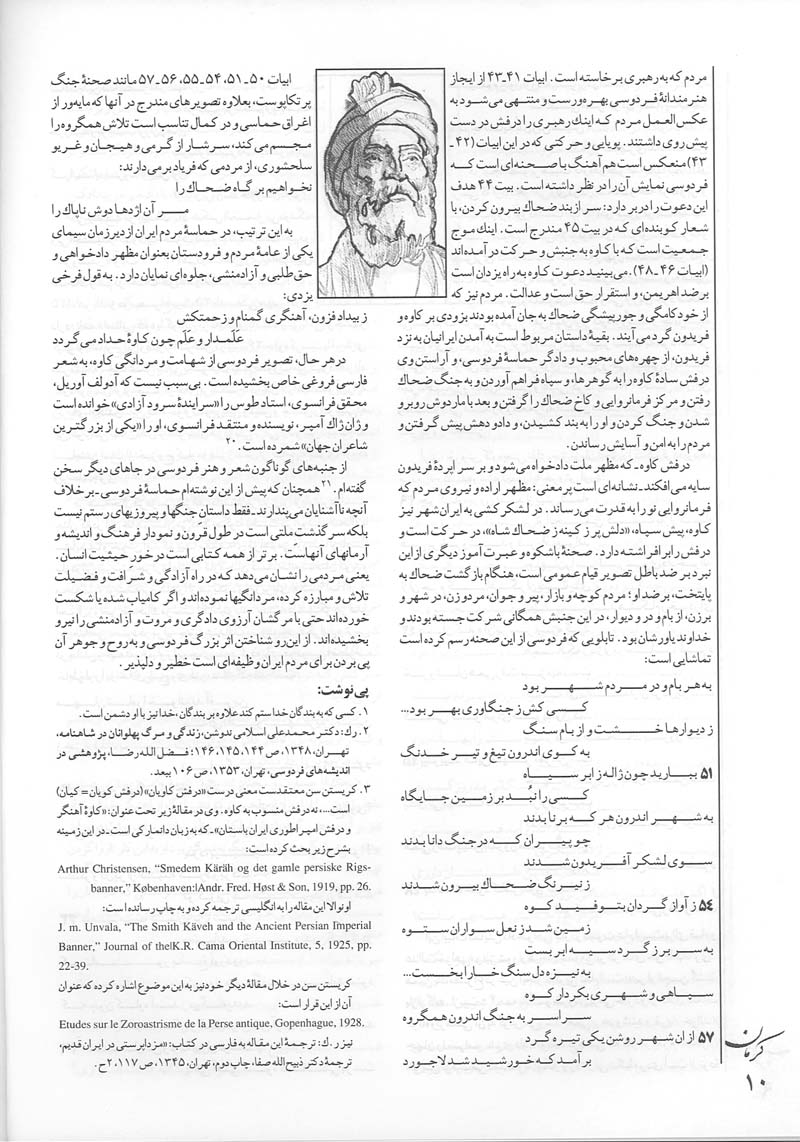 مردم که به رهبری برخاسته است. ابیات ۴۱ـ۴۳ از ایجاز
هنرمندانهٔ فردوسی بهره‌ورست و منتهی می‌شود به
عکس‌العمل مردم که اینك رهبری را درفش در دست
پیش روی داشتند. پویایی و حرکتی که در این ابیات (۴۲ـ
۴۳) منعکس است هم‌آهنگ با صحنه‌ای است که
فردوسی نمایش آن را در نظر داشته است. بیت ۴۴ هدف
این دعوت را در بر دارد: سر از بند ضحاك بیرون کردن، با
شعار کوبنده‌ای که در بیت ۴۵ مندرج است. اینك موج
جمعیت است که با کاوه به جنبش و حرکت در آمده‌اند
(ابیات ۴۶ـ۴۸). می‌بینید دعوت کاوه به راه یزدان است
بر ضد اهریمن، و استقرار حق است و عدالت. مردم نیز که
از خودکامگی و جورپیشگی ضحاك به جان آمده بودند بزودی بر کاوه و
فریدون گرد می‌آیند. بقیهٔ داستان مربوط است به آمدن ایرانیان به نزد
فریدون، از چهره‌های محبوب و دادگر حماسهٔ فردوسی، و آراستن وی
درفش سادهٔ کاوه را به گوهرها، و سپاه فراهم آوردن و به جنگ ضحاك
رفتن و مرکز فرمانروایی و کاخ ضحاك را گرفتن و بعد با ماردوش روبرو
شدن و جنگ کردن و او را به بند کشیدن، و داد و دهش پیش گرفتن و
مردم را به امن و آسایش رساندن.
درفش کاوه ـ که مظهر ملت دادخواه می‌شود و بر سراپردهٔ فریدون
سایه می‌افکند ـ نشانه‌ای است پر معنی: مظهر اراده و نیروی مردم که
فرمانروایی نو را به قدرت می‌رساند. در لشکرکشی به ایران‌شهر نیز
کاوه، پیش سپاه، «دلش پر ز کینه ز ضحاك شاه»، در حرکت است و
درفش را برافراشته دارد. صحنهٔ باشکوه و عبرت‌آموز دیگری از این
نبرد بر ضد باطل تصویر قیام عمومی است، هنگام بازگشت ضحاك به
پایتخت، بر ضد او؛ مردم کوچه و بازار، پیر و جوان، مرد و زن، در شهر و
برزن، از بام و در و دیوار، در این جنبش همگانی شرکت جسته بودند و
خداوند یاورشان بود. تابلویی که فردوسی از این صحنه رسم کرده است
تماشایی است:
به هر بام و در مردم شهر بود
کسی کش ز جنگاوری بهر بود...
ز دیوارها خشت و از بام سنگ
به کوی اندرون تیغ و تیر خدنگ
۵۱ ببارید چون ژاله ز ابر سیاه
کسی را نبُد بر زمین جایگاه
به شهر اندرون هر که برنا بدند
چو پیران که در جنگ دانا بدند
سوی لشکر آفریدون شدند
ز نیرنگ ضحاك بیرون شدند
۵۴ ز آواز گردان بتوفید کوه
زمین شد ز نعل سواران ستوه
به سر بر ز گرد سپه ابر بست
به نیزه دل سنگ خارا بخست...
سپاهی و شهری بکردار کوه
سراسر به جنگ اندرون همگروه
۵۷ از ان شهر روشن یکی تیره گرد
برآمد که خورشید شد لاجورد
ابیات ۵۰ـ۵۱، ۵۴ـ۵۵، ۵۶ـ۵۷ مانند صحنهٔ جنگ
پرتکاپوست، بعلاوه تصویرهای مندرج در آنها که مایه‌ور از
اغراق حماسی و در کمال تناسب است تلاش همگروه را
مجسم می‌کند، سرشار از گرمی و هیجان و غریو
سلحشوری، از مردمی که فریاد بر می‌دارند:
نخواهیم بر گاه ضحاك را
مر آن اژدها دوش ناپاك را
به این ترتیب، در حماسهٔ مردم ایران از دیرزمان سیمای
یکی از عامهٔ مردم و فرودستان بعنوان مظهر دادخواهی و
حق‌طلبی و آزادمنشی، جلوه‌ای نمایان دارد. به قول فرخی
یزدی:
ز بیداد فزون، آهنگری گمنام و زحمتکش
علمدار و علَم چون کاوهٔ حداد می‌گردد
در هر حال، تصویر فردوسی از شهامت و مردانگی کاوه، به شعر
فارسی فروغی خاص بخشیده است. بی‌سبب نیست که آدولف آوریل،
محقق فرانسوی، استاد طوس را «سرایندهٔ سرود آزادی» خوانده است
و ژان ژاك آمپر، نویسنده و منتقد فرانسوی، او را «یکی از بزرگترین
شاعران جهان» شمرده است.۲۰
از جنبه‌های گوناگون شعر و هنر فردوسی در جاهای دیگر سخن
گفته‌ام.۲۱ همچنان که پیش از این نوشته‌ام حماسهٔ فردوسی ـ برخلاف
آنچه ناآشنایان می‌پندارند ـ فقط داستان جنگها و پیروزیهای رستم نیست
بلکه سرگذشت ملتی است در طول قرون و نمودار فرهنگ و اندیشه و
آرمانهای آنهاست. برتر از همه کتابی است در خور حیثیت انسان.
یعنی مردمی را نشان می‌دهد که در راه آزادگی و شرافت و فضیلت
تلاش و مبارزه کرده، مردانگیها نموده‌اند و اگر کامیاب شده یا شکست
خورده‌اند حتی با مرگشان آرزوی دادگری و مروت و آزادمنشی را نیرو
بخشیده‌اند. از این رو شناختن اثر بزرگ فردوسی و به روح و جوهر آن
پی بردن برای مردم ایران وظیفه‌ای است خطیر و دلپذیر.
پی‌نوشت:
۱. کسی که به بندگان خدا ستم کند علاوه بر بندگان، خدا نیز با او دشمن است.
۲. رك: دکتر محمدعلی اسلامی ندوشن، زندگی و مرگ پهلوانان در شاهنامه،
تهران، ۱۳۴۸، ص ۱۴۴، ۱۴۵، ۱۴۶؛ فضل الله رضا، پژوهشی در
اندیشه‌های فردوسی، تهران، ۱۳۵۳، ص ۱۰۶ ببعد.
۳. کریستن سن معتقدست معنی درست «درفش کاویان» (درفش کویان = کیان)
است...، نه درفش منسوب به کاوه. وی در مقالهٔ زیر تحت عنوان: «کاوهٔ آهنگر
و درفش امپراطوری ایران باستان» ـ که به زبان دانمارکی است ـ در این زمینه
بشرح زیر بحث کرده است:
Arthur Christensen, “Smedem Käräh og det gamle persiske Rigs-
banner,” København:lAndr. Fred. Høst & Son, 1919, pp. 26.
اونوالا این مقاله را به انگلیسی ترجمه کرده و به چاپ رسانده است:
J. m. Unvala, “The Smith Käveh and the Ancient Persian Imperial
Banner,” Journal of thelK.R. Cama Oriental Institute, 5, 1925, pp.
22-39.
کریستن سن در خلال مقالهٔ دیگر خود نیز به این موضوع اشاره کرده که عنوان
آن از این قرار است:
Etudes sur le Zoroastrisme de la Perse antique, Gopenhague, 1928.
نیز ر.ك: ترجمهٔ این مقاله به فارسی در کتاب: «مزداپرستی در ایران قدیم،
ترجمهٔ دکتر ذبیح الله صفا، چاپ دوم، تهران، ۱۳۴۵، ص ۱۱۷، ۲ح.
کرمان
۱۰